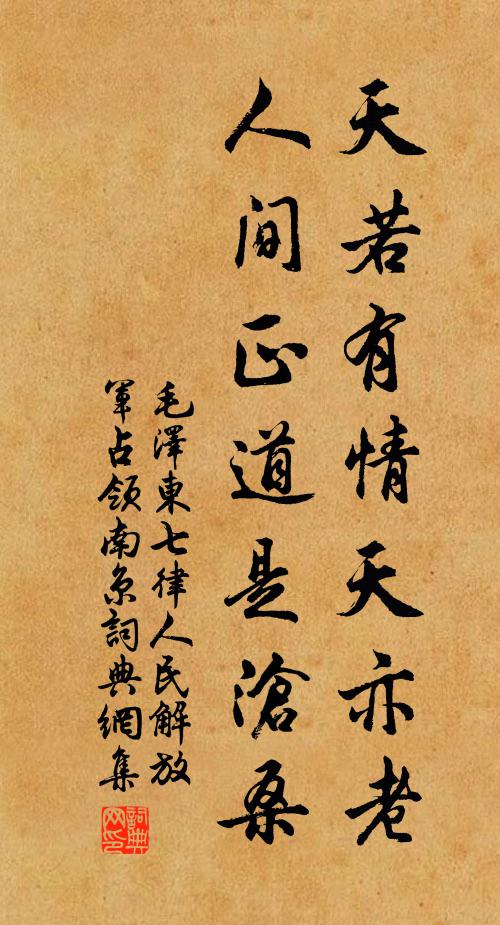 天若有情天亦老
人间正道是滄桑
毛澤東七律人民解放
軍占领南京詞典網集
詞典
网印